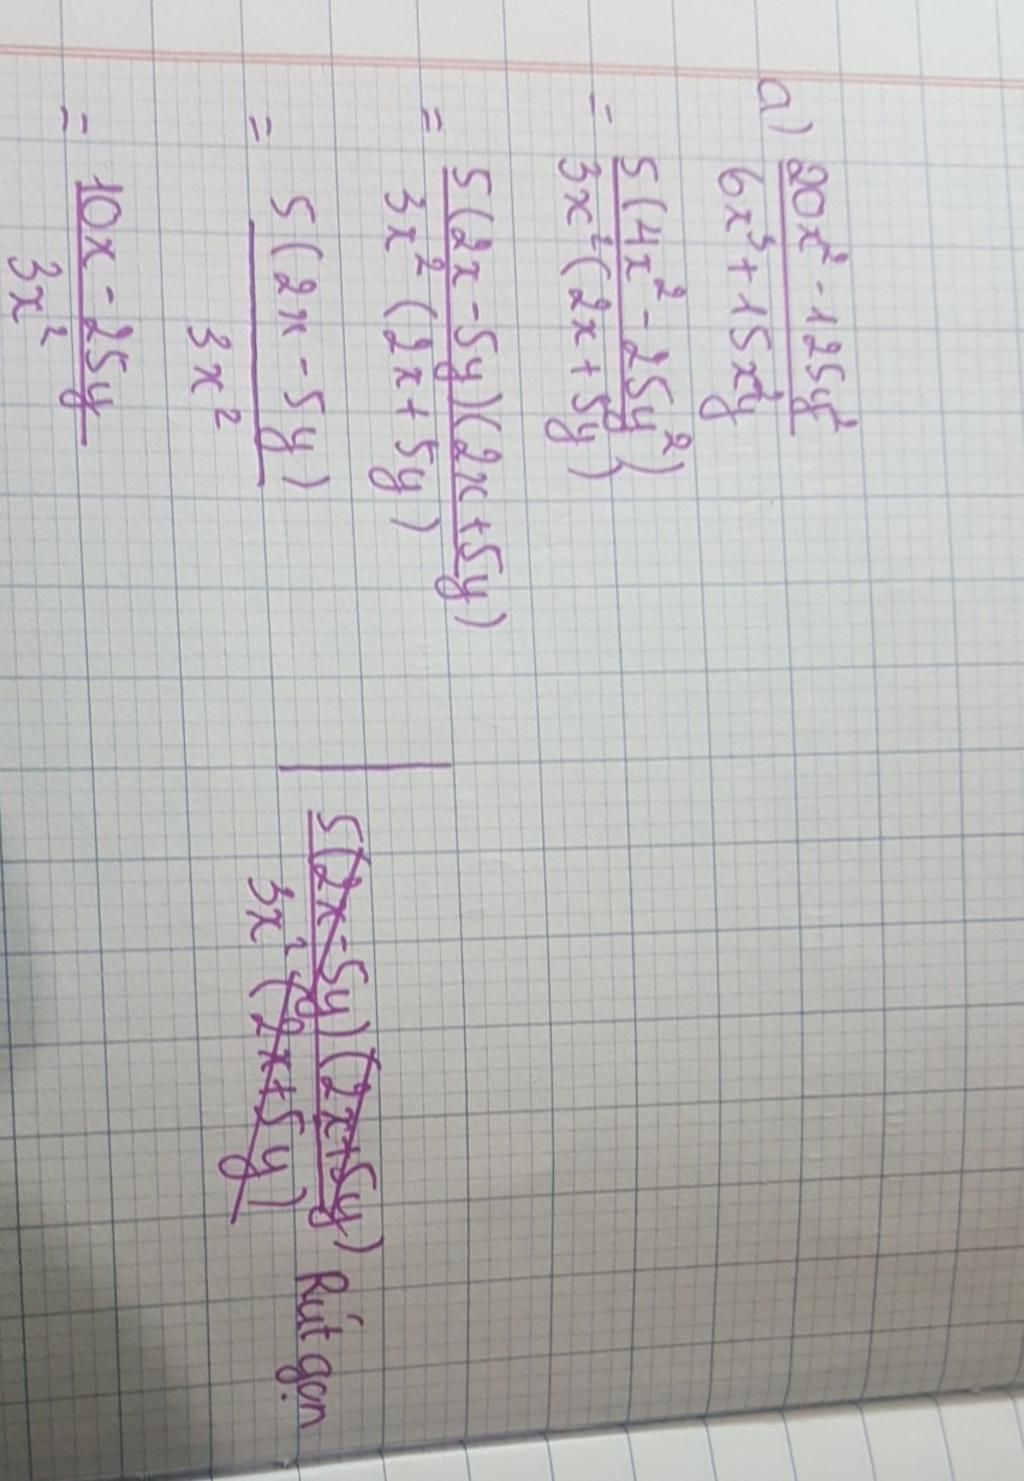 a) \frac{20x^2 - 125y^2}{6x^3 + 15x^2y}
= \frac{5(4x^2 - 25y^2)}{3x^2(2x + 5y)}
= \frac{5(2x - 5y)(2x + 5y)}{3x^2(2x + 5y)}
= \frac{5(2x - 5y)}{3x^2}
= \frac{10x - 25y}{3x^2}
\frac{5(2x - 5y)(2x + 5y)}{3x^2(2x + 5y)} Rút gọn